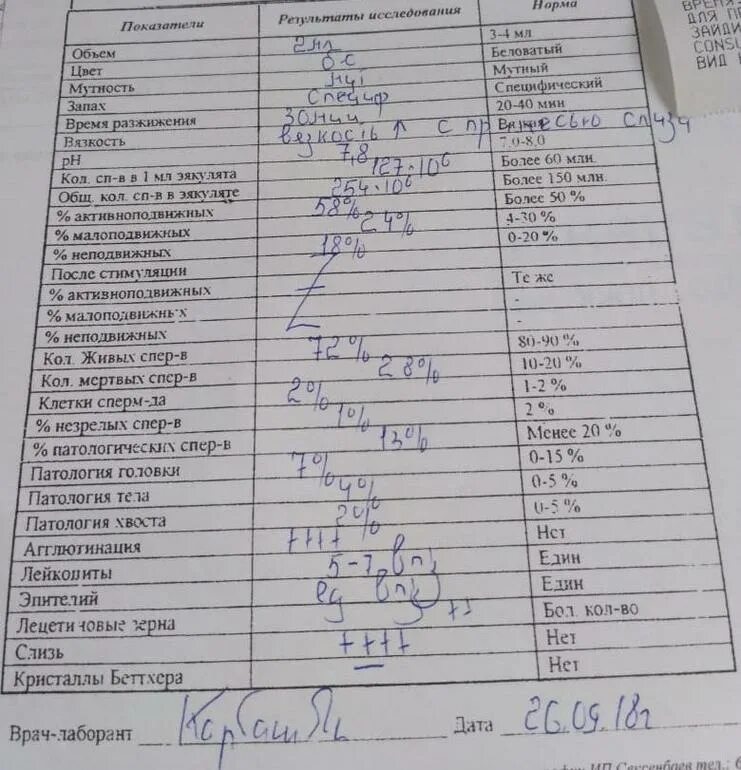 Показатели Результаты исследования Норма
Объем 2мл 3-4 мл
Цвет б-с Беловатый
Мутность мут Мутный
Запах специф Специфический
Время разжижения 30мин 20-40 мин
Вязкость вязкость ↑ с примесью слизи
pH 7,8 7,0-8,0
Кол. сп-в в 1 мл эякулята 127·10⁶ Более 60 млн.
Общ. кол. сп-в в эякуляте 254·10⁶ Более 150 млн.
% активноподвижных 58% Более 50 %
% малоподвижных 24% 4-30 %
% неподвижных 18% 0-20 %
После стимуляции
% активноподвижных Те же
% малоподвижных -
% неподвижных -
Кол. Живых спер-в 72% 80-90 %
Кол. мертвых спер-в 28% 10-20 %
Клетки сперм-да 2% 1-2 %
% незрелых спер-в 1% 2 %
% патологических спер-в 13% Менее 20 %
Патология головки 7% 0-15 %
Патология тела 4% 0-5 %
Патология хвоста 2% 0-5 %
Агглютинация ++++ Нет
Лейкоциты 5-7 в п/з Един
Эпителий ед в п/з Един
Лецетиновые зерна ++ Бол. кол-во
Слизь ++++ Нет
Кристаллы Беттхера — Нет
Врач-лаборант Дата 26.09.18г
ДЛЯ ПР
ЗАЙДИ
CONSU
ВИД